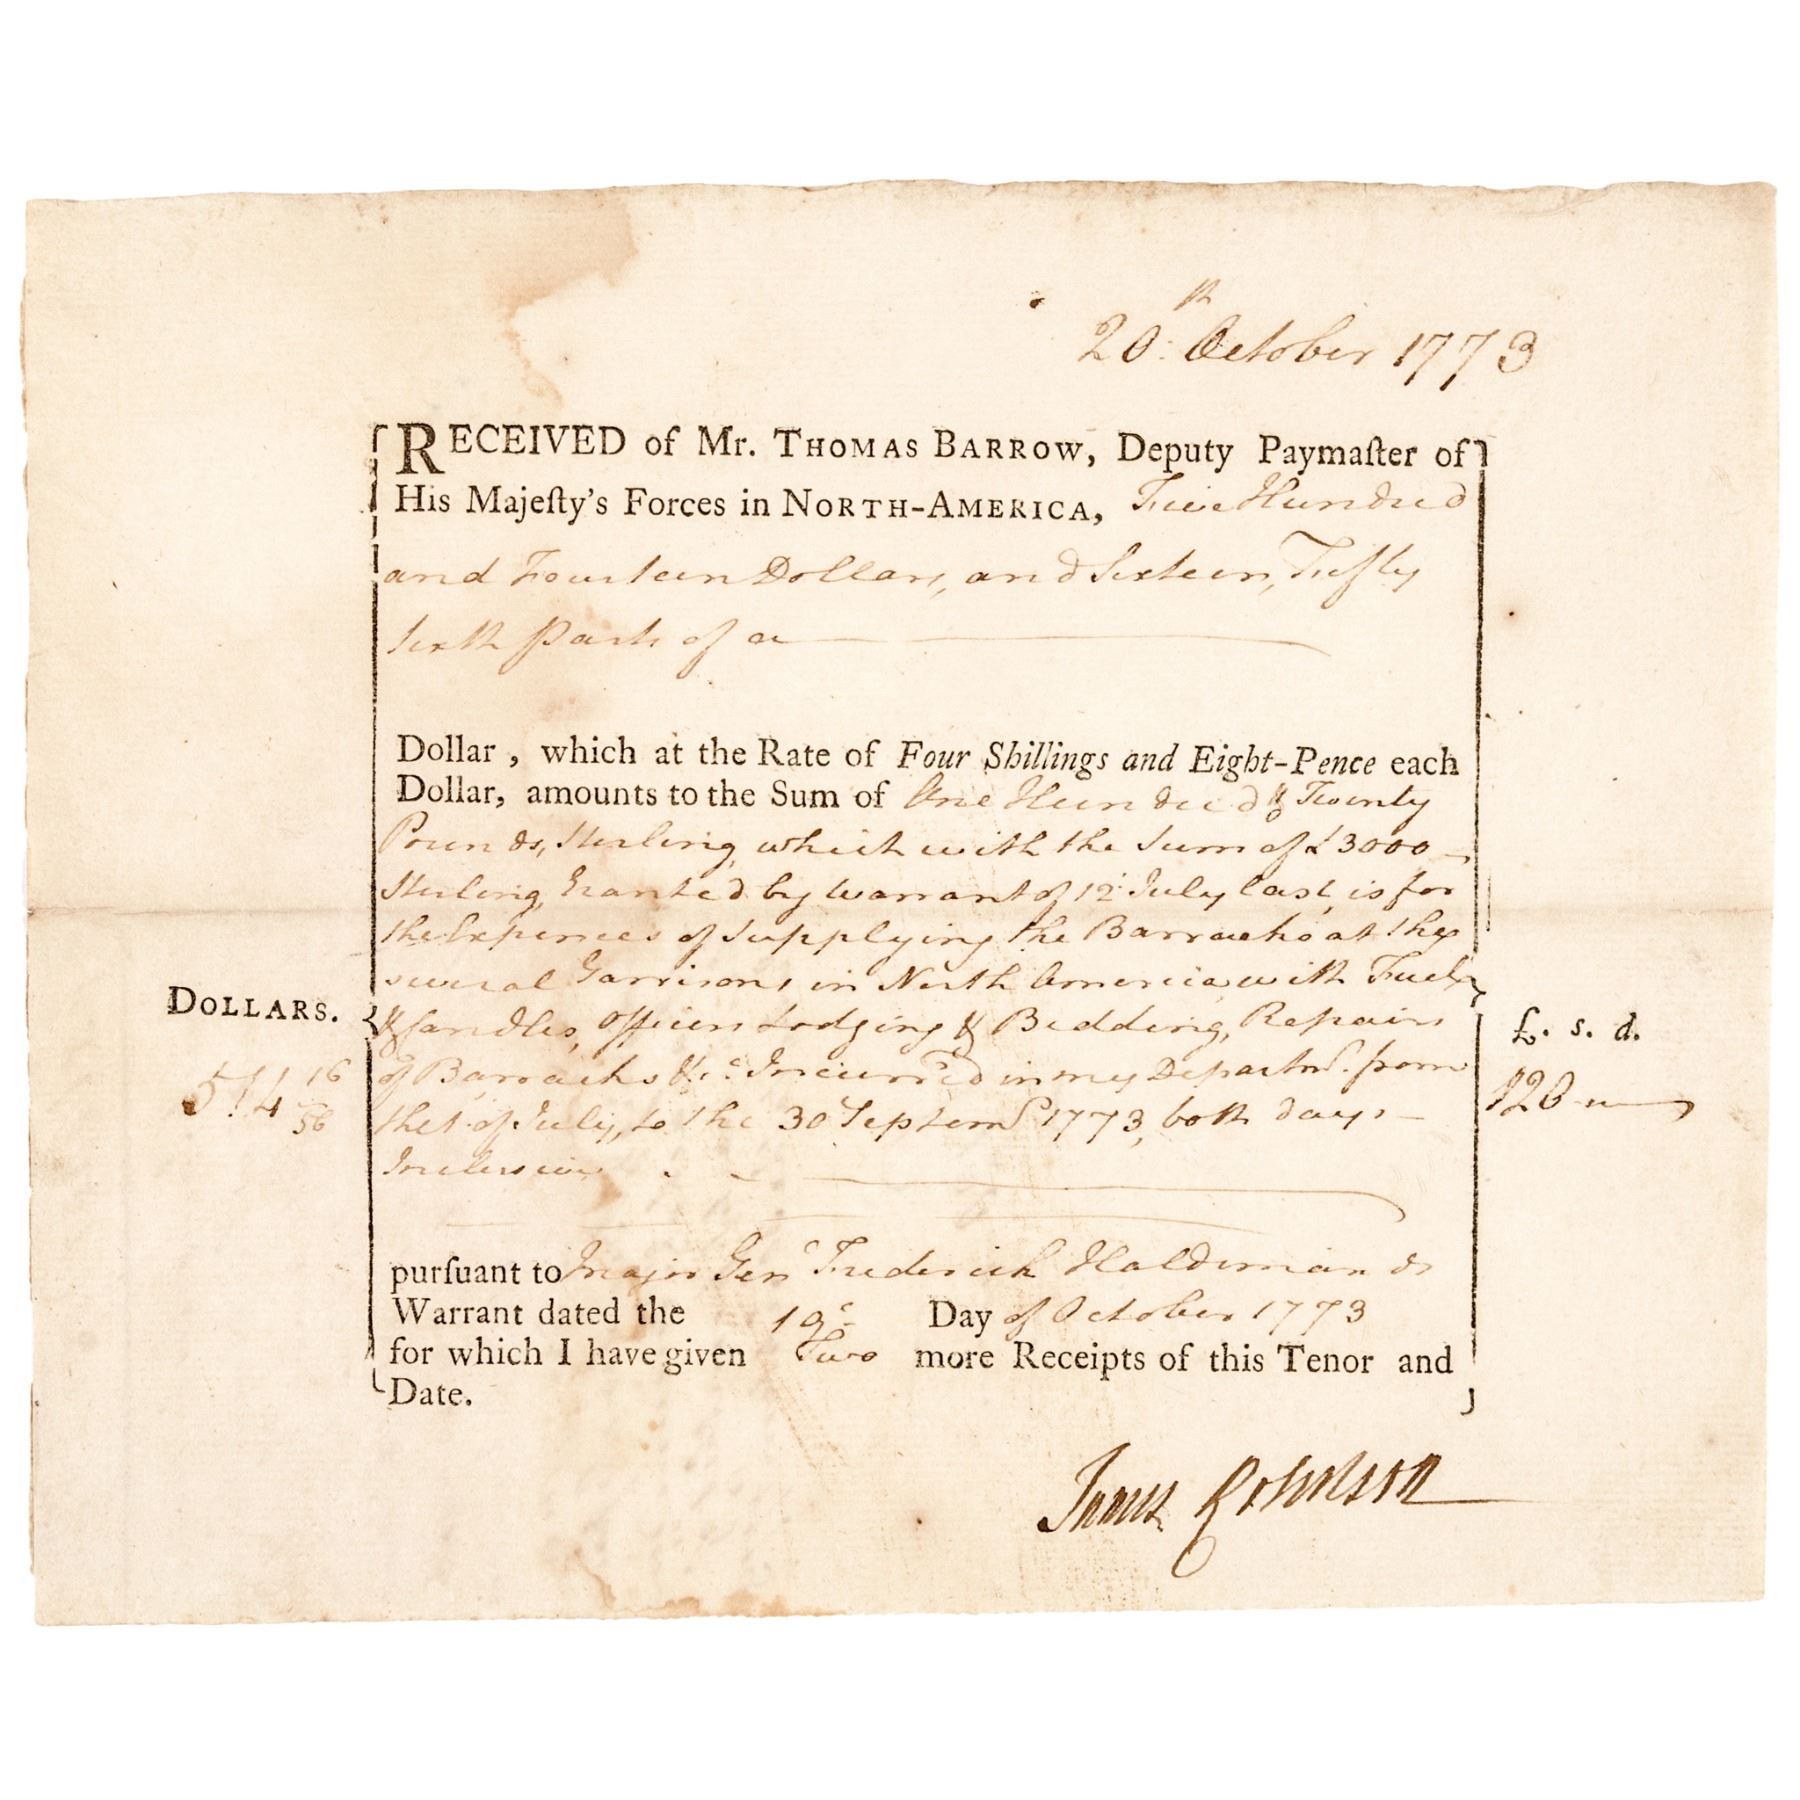 20th October 1773
RECEIVED of Mr. THOMAS BARROW, Deputy Paymaſter of
His Majeſty's Forces in NORTH-AMERICA, Five Hundred
and Fourteen Dollars, and Sixteen, Fifty
Sixth Parts of a
Dollar, which at the Rate of Four Shillings and Eight-Pence each
Dollar, amounts to the Sum of One Hundred & Twenty
Pounds, Sterling, which with the Sum of £3000
Sterling, Granted by Warrant of 12 July last, is for
the Expences of Supplying the Barracks at the
several Garrisons in North America with Fuel
& Candles, Officers Lodging & Bedding, Repairs
of Barracks &c. Incurr'd in my Departmt. from
the 1 of July, to the 30 Septemr 1773, both days
Inclusive
DOLLARS.
514 16/56
£. s. d.
120 " "
purſuant to Major Genl Frederick Haldimands
Warrant dated the 19 Day of October 1773
for which I have given Two more Receipts of this Tenor and
Date.
James Robertson